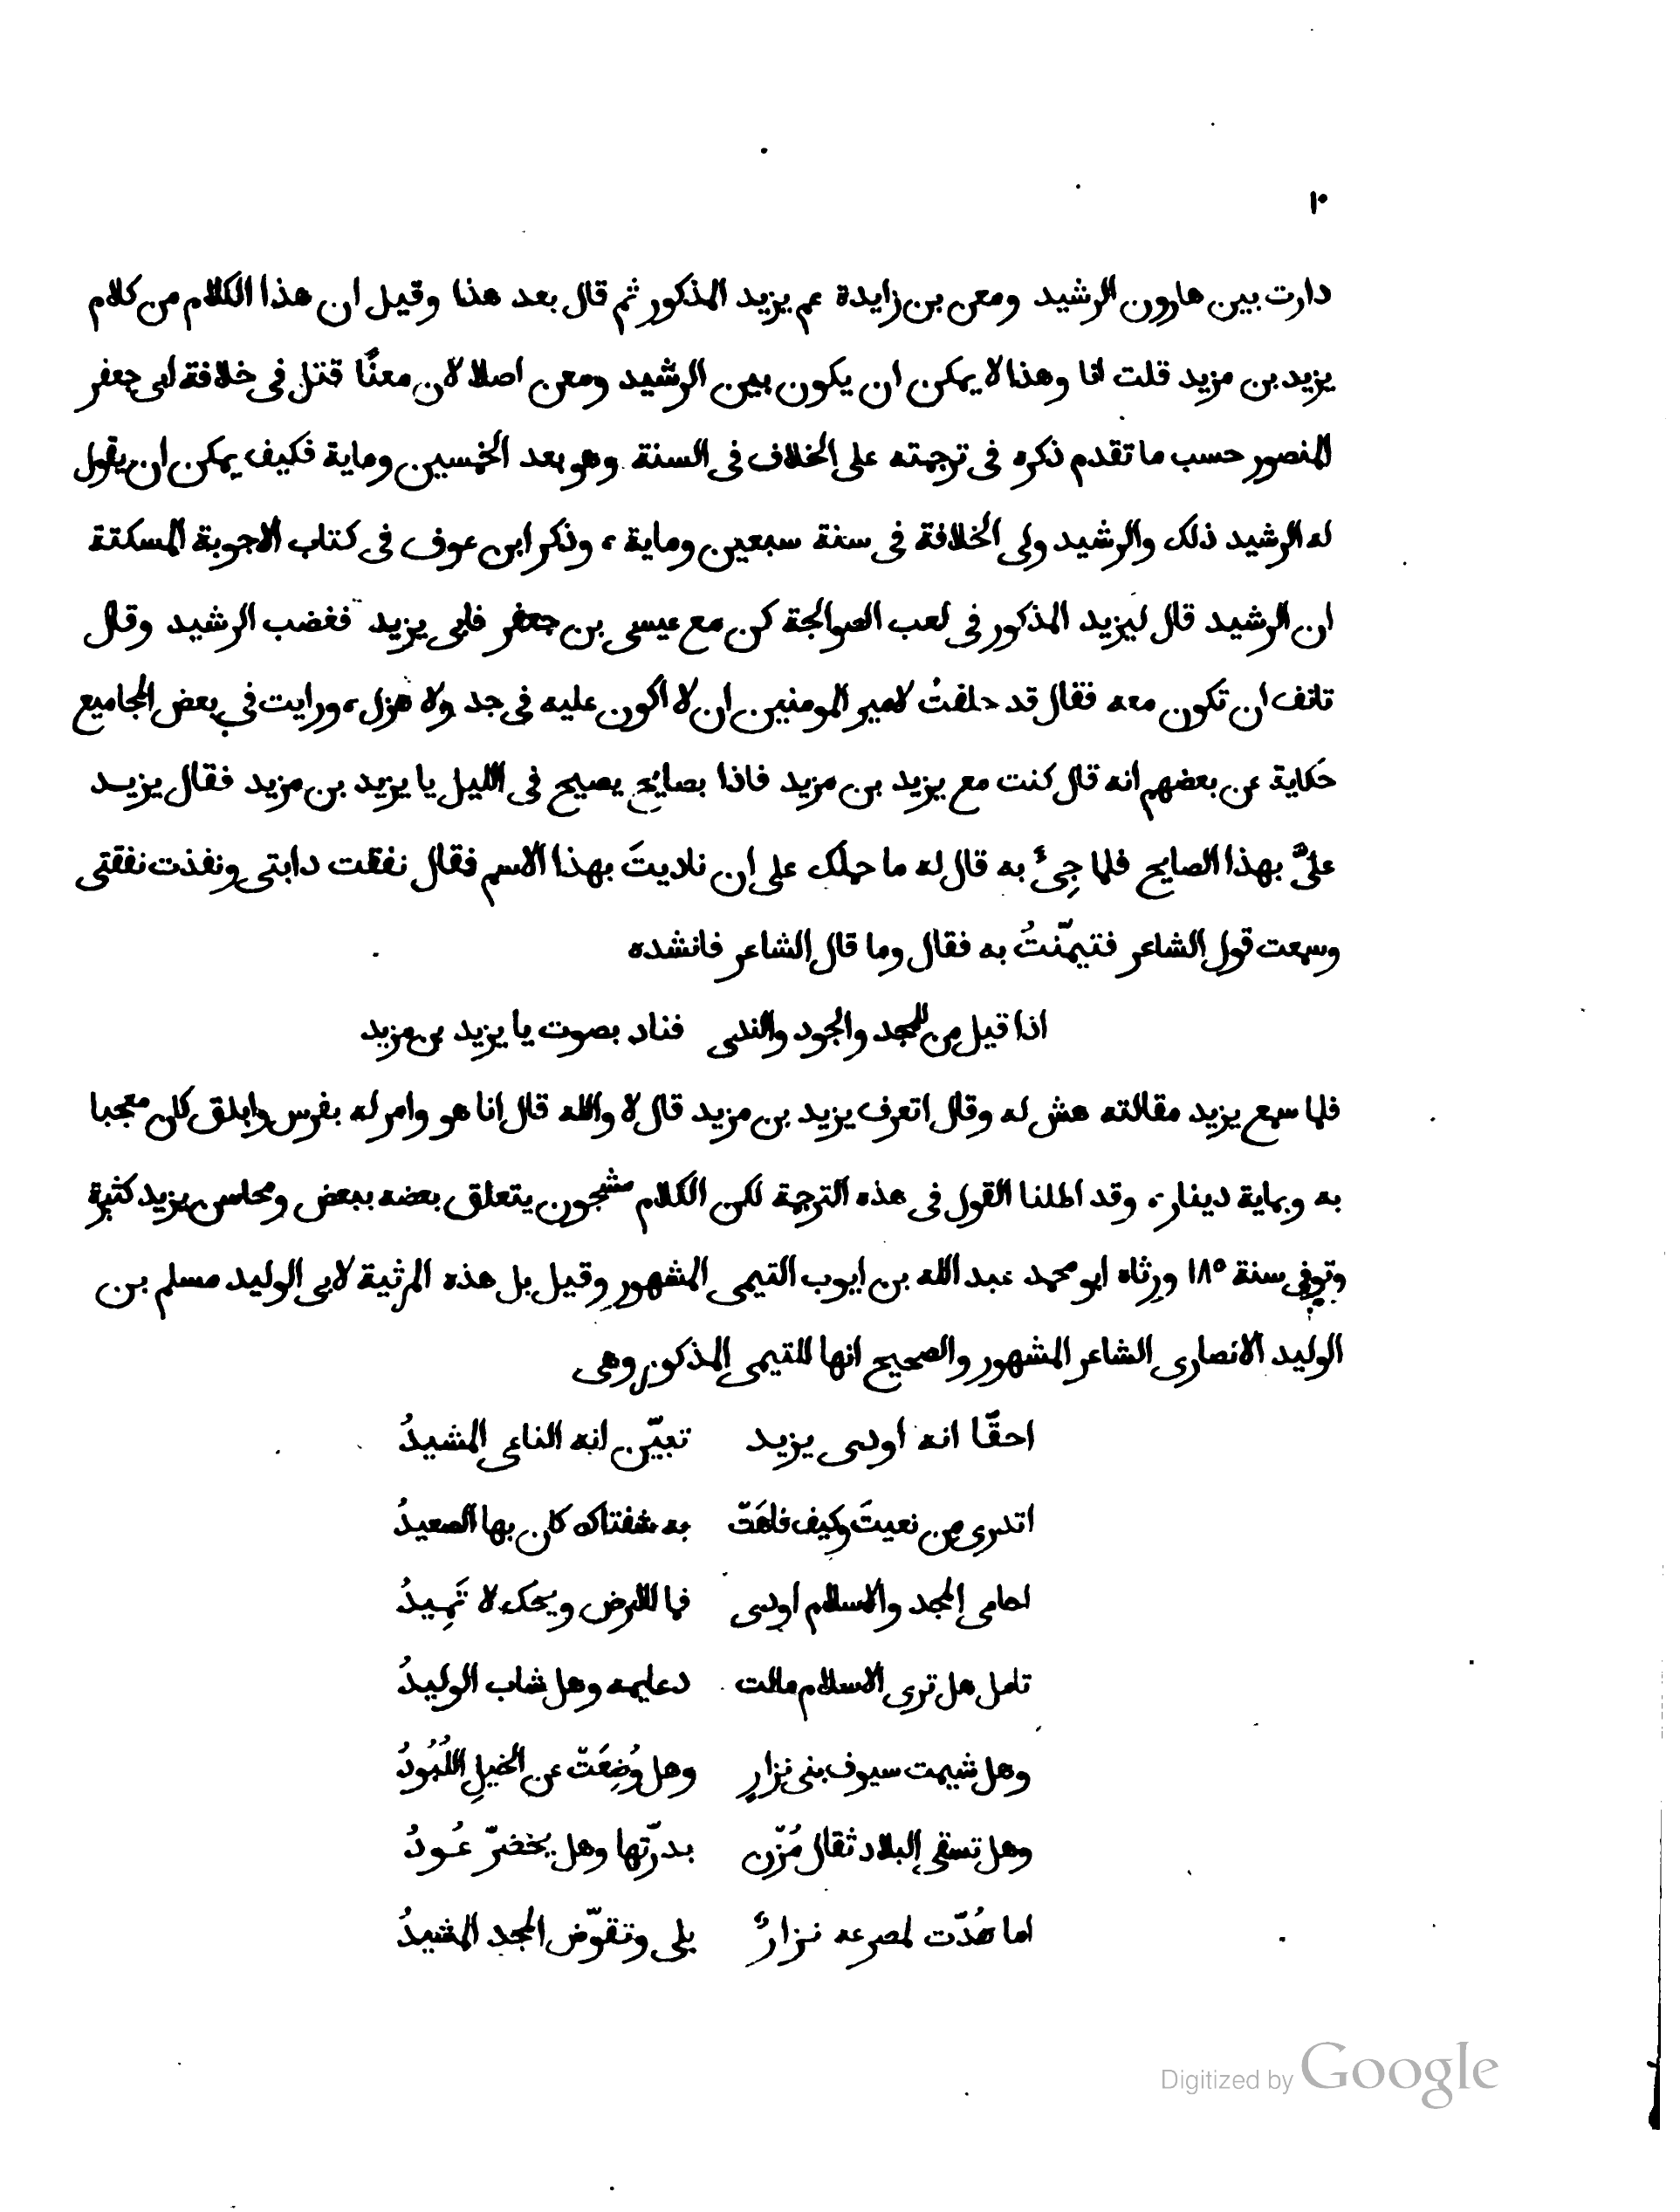 ١٠
دارت بين هارون الرشيد ومعن بن زايدة عم يزيد المذكور ثم قال بعد هذا وقيل ان هذا الكلام من كلام
يزيد بن مزيد قلت انا وهذا لا يمكن ان يكون بين الرشيد ومعن اصلا لان معنًا قتل فى خلافة ابى جعفر
المنصور حسب ما تقدم ذكره فى ترجمته على الخلاف فى السنة وهو بعد الخمسين وماية فكيف يمكن ان يقول
له الرشيد ذلك والرشيد ولى الخلافة فى سنة سبعين وماية، وذكر ابن عوف فى كتاب الاجوبة المسكتة
ان الرشيد قال ليزيد المذكور فى لعب الصوالجة كن مع عيسى بن جعفر فابى يزيد فغضب الرشيد وقال
تانف ان تكون معه فقال قد حلفتُ لامير المومنين ان لا اكون عليه فى جد ولا هزل، ورايت فى بعض المجاميع
حكاية عن بعضهم انه قال كنت مع يزيد بن مزيد فاذا بصايح يصيح فى الليل يا يزيد بن مزيد فقال يزيد
علىّ بهذا الصايح فلما جِىءَ به قال له ما حملك على ان ناديتَ بهذا الاسم فقال نفقت دابتى ونفذت نفقتى
وسمعت قول الشاعر فتيمّنتُ به فقال وما قال الشاعر فانشده
اذا قيل من للمجد والجود والندى فناد بصوت يا يزيد بن مزيد
فلما سمع يزيد مقالته هش له وقال اتعرف يزيد بن مزيد قال لا والله قال انا هو وامر له بفرس وابلق كان معجبا
به وبماية دينار، وقد اطلنا القول فى هذه الترجمة لكن الكلام مشجون يتعلق بعضه ببعض ومحاسن يزيد كثيرة
وتوفى سنة ١٨٥ ورثاه ابو محمد عبد الله بن ايوب التيمى المشهور وقيل بل هذه المرثية لابى الوليد مسلم بن
الوليد الانصارى الشاعر المشهور والصحيح انها للتيمى المذكور وهى
احقّا انه اودى يزيد تبيّن انه الناعى المشيدُ
اتدرى من نعيتَ وكيف فاهَتْ به شفتاك كان بها الصعيدُ
احامى المجد والاسلام اودى فما للارض ويحك لا تَمِيدُ
تامل هل ترى الاسلام مالت دعايمه وهل شاب الوليدُ
وهل شيمت سيوف بنى نزارٍ وهل وُضِعَتْ عن الخيلِ اللُبُودُ
وهل تسقى البلاد ثقال مُزْن بدرّتها وهل يخضرّ عُودُ
اما هُدّت لمصرعه نزارٌ بلى وتقوّض المجد المشيدُ
Digitized by Google